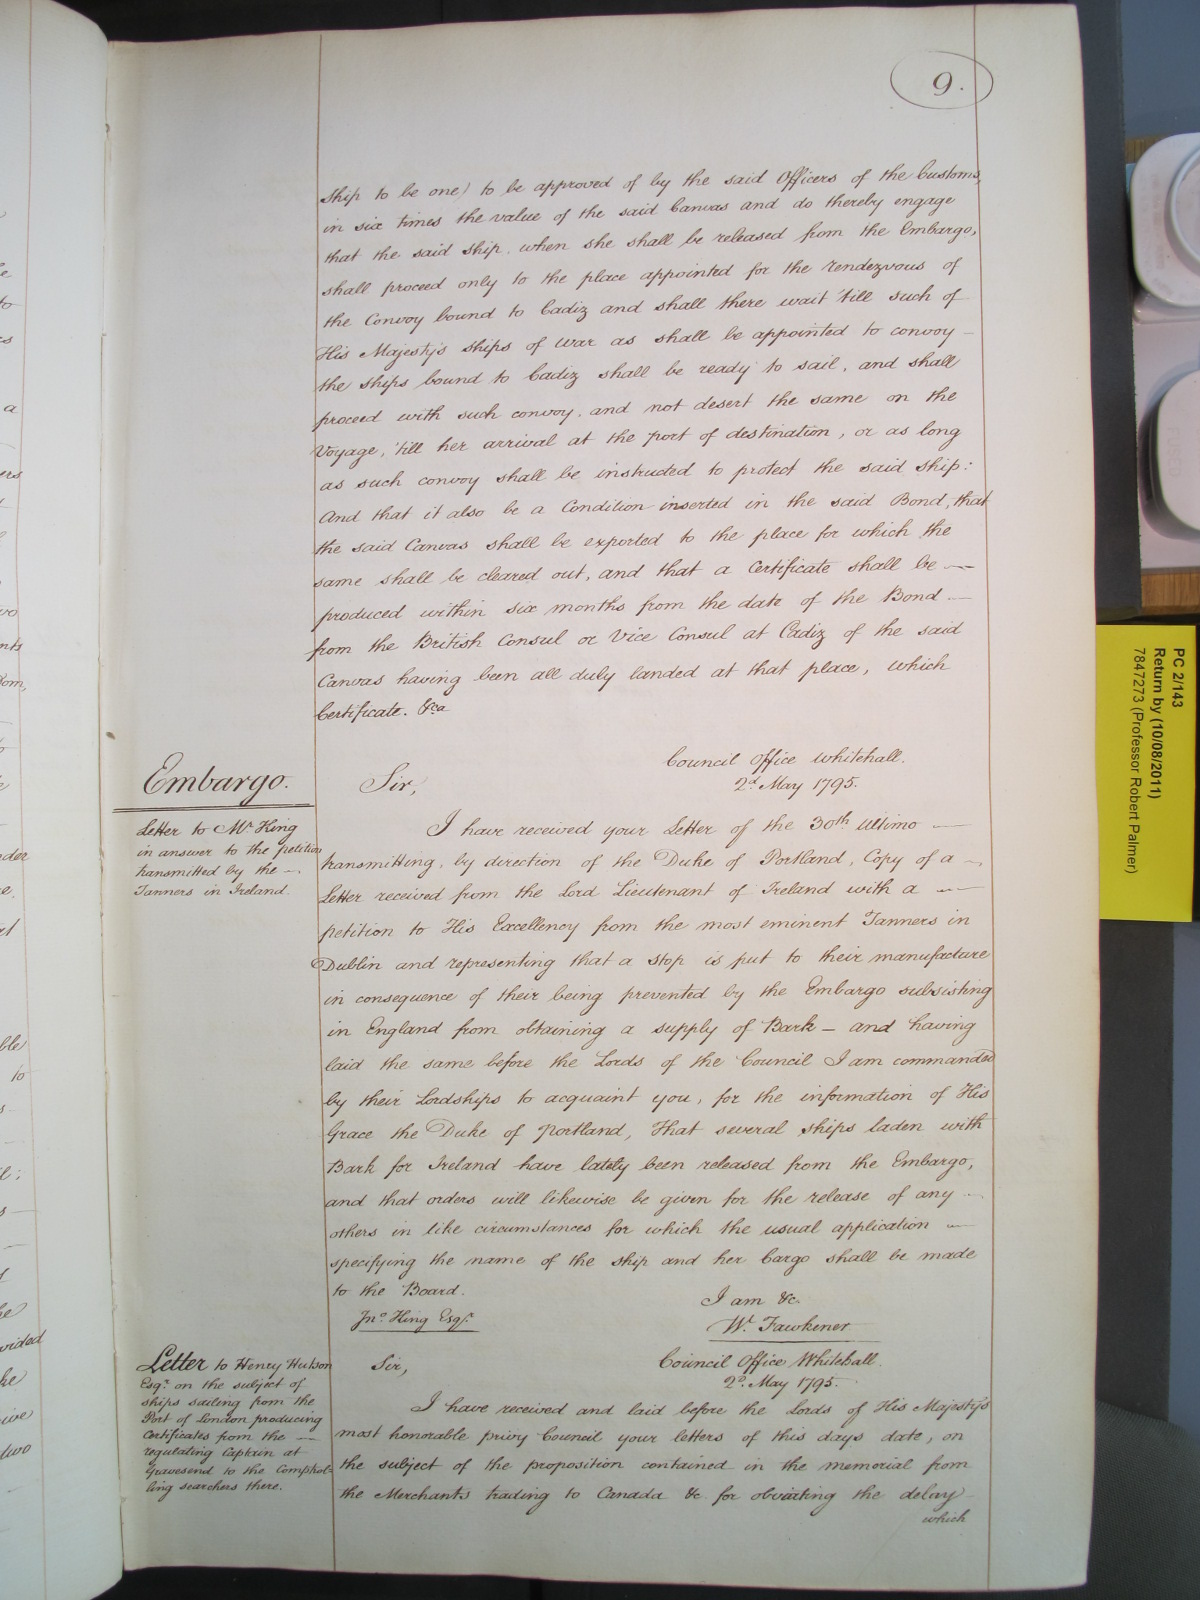 9.
ship to be one) to be approved of by the said Officers of the Customs,
in six times the value of the said Canvas and do thereby engage
that the said ship, when she shall be released from the Embargo,
shall proceed only to the place appointed for the rendezvous of
the Convoy bound to Cadiz and shall there wait 'till such of
His Majesty's ships of war as shall be appointed to convoy
the ships bound to Cadiz shall be ready to sail, and shall
proceed with such convoy, and not desert the same on the
Voyage, 'till her arrival at the port of destination, or as long
as such convoy shall be instructed to protect the said ship:
And that it also be a Condition inserted in the said Bond, that
the said Canvas shall be exported to the place for which the
same shall be cleared out, and that a Certificate shall be
produced within six months from the date of the Bond
from the British Consul or Vice Consul at Cadiz of the said
Canvas having been all duly landed at that place, which
Certificate. &ca
Embargo.
Letter to Mr. King
in answer to the petition
transmitted by the
Tanners in Ireland.
Council Office Whitehall.
2d. May 1795.
Sir,
I have received your Letter of the 30th Ultimo
transmitting, by direction of the Duke of Portland, Copy of a
Letter received from the Lord Lieutenant of Ireland with a
petition to His Excellency from the most eminent Tanners in
Dublin and representing that a stop is put to their manufacture
in consequence of their being prevented by the Embargo subsisting
in England from obtaining a supply of Bark – and having
laid the same before the Lords of the Council I am commanded
by their Lordships to acquaint you, for the information of His
Grace the Duke of Portland, That several ships laden with
Bark for Ireland have lately been released from the Embargo,
and that orders will likewise be given for the release of any
others in like circumstances for which the usual application
specifying the name of the ship and her Cargo shall be made
to the Board.
I am &c.
Jno. King Esqr.
W. Fawkener
Letter to Henry Hutson
Esqr. on the subject of
ships sailing from the
Port of London producing
Certificates from the
regulating Captain at
Gravesend to the Comptrol-
ling searchers there.
Council Office Whitehall.
2d. May 1795.
Sir,
I have received and laid before the Lords of His Majesty's
most honorable privy Council your letters of this days date, on
the subject of the proposition contained in the memorial from
the Merchants trading to Canada &c for obviating the delay
which
PC 2/143
Return by (10/08/2011)
7847273 (Professor Robert Palmer)